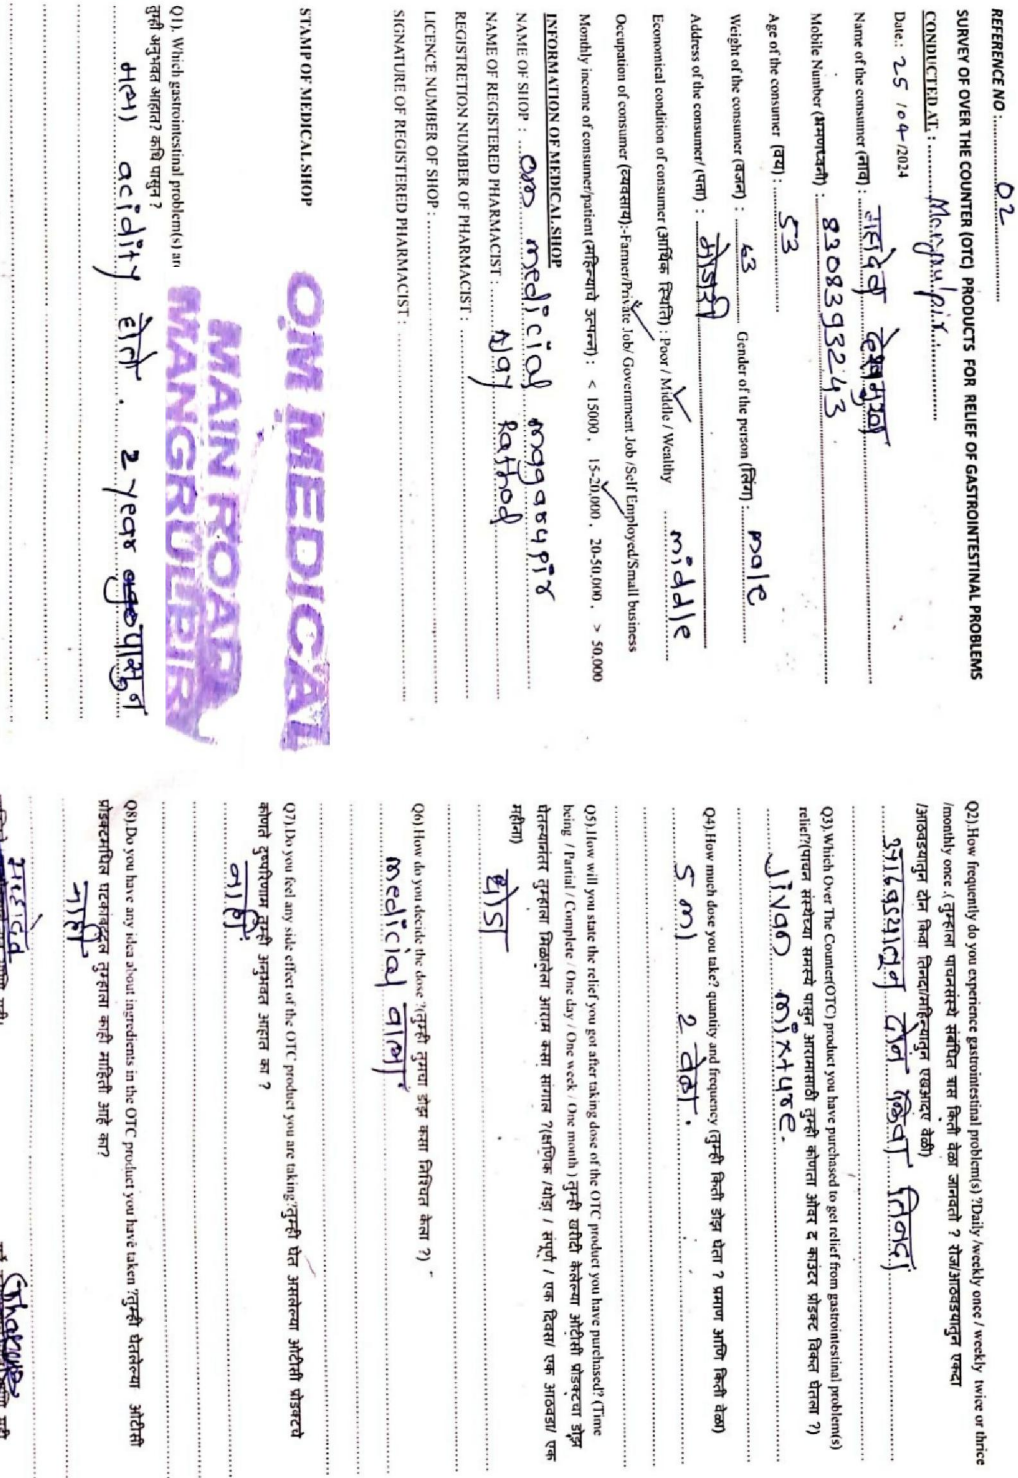 REFERENCE NO : 02
SURVEY OF OVER THE COUNTER (OTC) PRODUCTS FOR RELIEF OF GASTROINTESTINAL PROBLEMS
CONDUCTED AT : Mangrulpir.
Date: 25 / 04 /2024
Name of the consumer (नाव) : महादेव देशमुख
Mobile Number (भ्रमणध्वनी) : 83083993243
Age of the consumer (वय) : 53
Weight of the consumer (वजन) : 63 Gender of the person (लिंग) : male
Address of the consumer/ (पत्ता) :
Economical condition of consumer (आर्थिक स्थिती) : Poor / Middle / Wealthy middle
Occupation of consumer (व्यवसाय):-Farmer/Private Job/ Government Job /Self Employed/Small business
Monthly income of consumer/patient (महिन्याचे उत्पन्न) : < 15000 , 15-20,000 , 20-50,000 , > 50,000
INFORMATION OF MEDICAL SHOP
NAME OF SHOP : om medicial mggarupir
NAME OF REGISTERED PHARMACIST : Rathod
REGISTRETION NUMBER OF PHARMACIST :
LICENCE NUMBER OF SHOP :
SIGNATURE OF REGISTERED PHARMACIST :
STAMP OF MEDICAL SHOP
OM MEDICAL
MAIN ROAD
MANGRULPIR
Q1). Which gastrointestinal problem(s) ar
तुम्ही अनुभवत आहात? कधि पासुन ?
मला acidity होते . 2 year पासुन
Q2).How frequently do you experience gastrointestinal problem(s) ?Daily /weekly once / weekly twice or thrice
/monthly once .( तुम्हाला पाचनसंस्थे संबंधित त्रास किती वेळा जानवतो ? रोज/आठवडयातुन एकदा
/आठवडयातुन दोन किवा तिनदा/महिन्यातुन एखआदए वेळी)
आठवड्यातून दोन किंवा तिनदा
Q3).Which Over The Counter(OTC) product you have purchased to get relief from gastrointestinal problem(s)
relief?(पाचन संस्थेच्या समस्ये पासुन आरामासाठी तुम्ही कोणता ओवर द काउंटर प्रोडक्ट विकत घेतला ?)
Jivan mixture.
Q4).How much dose you take? quantity and frequency (तुम्ही किती डोझ घेता ? प्रमाण आणि किती वेळा)
5 ml 2 वेळा.
Q5).How will you state the relief you got after taking dose of the OTC product you have purchased? (Time
being / Partial / Complete / One day / One week / One month ) तुम्ही खरीदी केलेल्या ओटीसी प्रोडक्टचा डोझ
घेतल्यानंतर तुम्हाला मिळालेला आराम कसा संगाल ?(क्षणिक /थोडा / संपूर्ण / एक दिवस/ एक आठवडा/ एक
महीना)
थोडा
Q6).How do you decide the dose ?(तुम्ही तुमचा डोझ कसा निश्चित केला ?)
medicial वाला
Q7).Do you feel any side effect of the OTC product you are taking?तुम्ही घेत असलेल्या ओटीसी प्रोडक्टचे
कोणते दुष्परीणाम तुम्ही अनुभवत आहात का ?
नाही.
Q8).Do you have any idea about ingredients in the OTC product you have taken ?तुम्ही घेतलेल्या ओटीसी
प्रोडक्टमधिल घटकांबद्दल तुम्हाला काही माहिती आहे का?
नाही.
महादेव